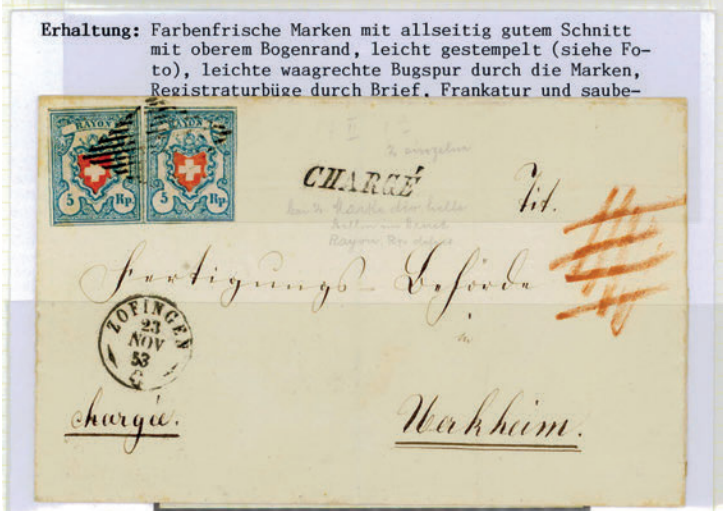 Erhaltung: Farbenfrische Marken mit allseitig gutem Schnitt
mit oberem Bogenrand, leicht gestempelt (siehe Fo-
to), leichte waagrechte Bugspur durch die Marken,
Registraturbüge durch Brief. Frankatur und saube-
RAYON
RAYON
5 Rp.
5 Rp.
2 einzeln
CHARGÉ
Tit.
Fertigungs-Behörde
in
ZOFINGEN
23
NOV
53
chargée.
Uerkheim.